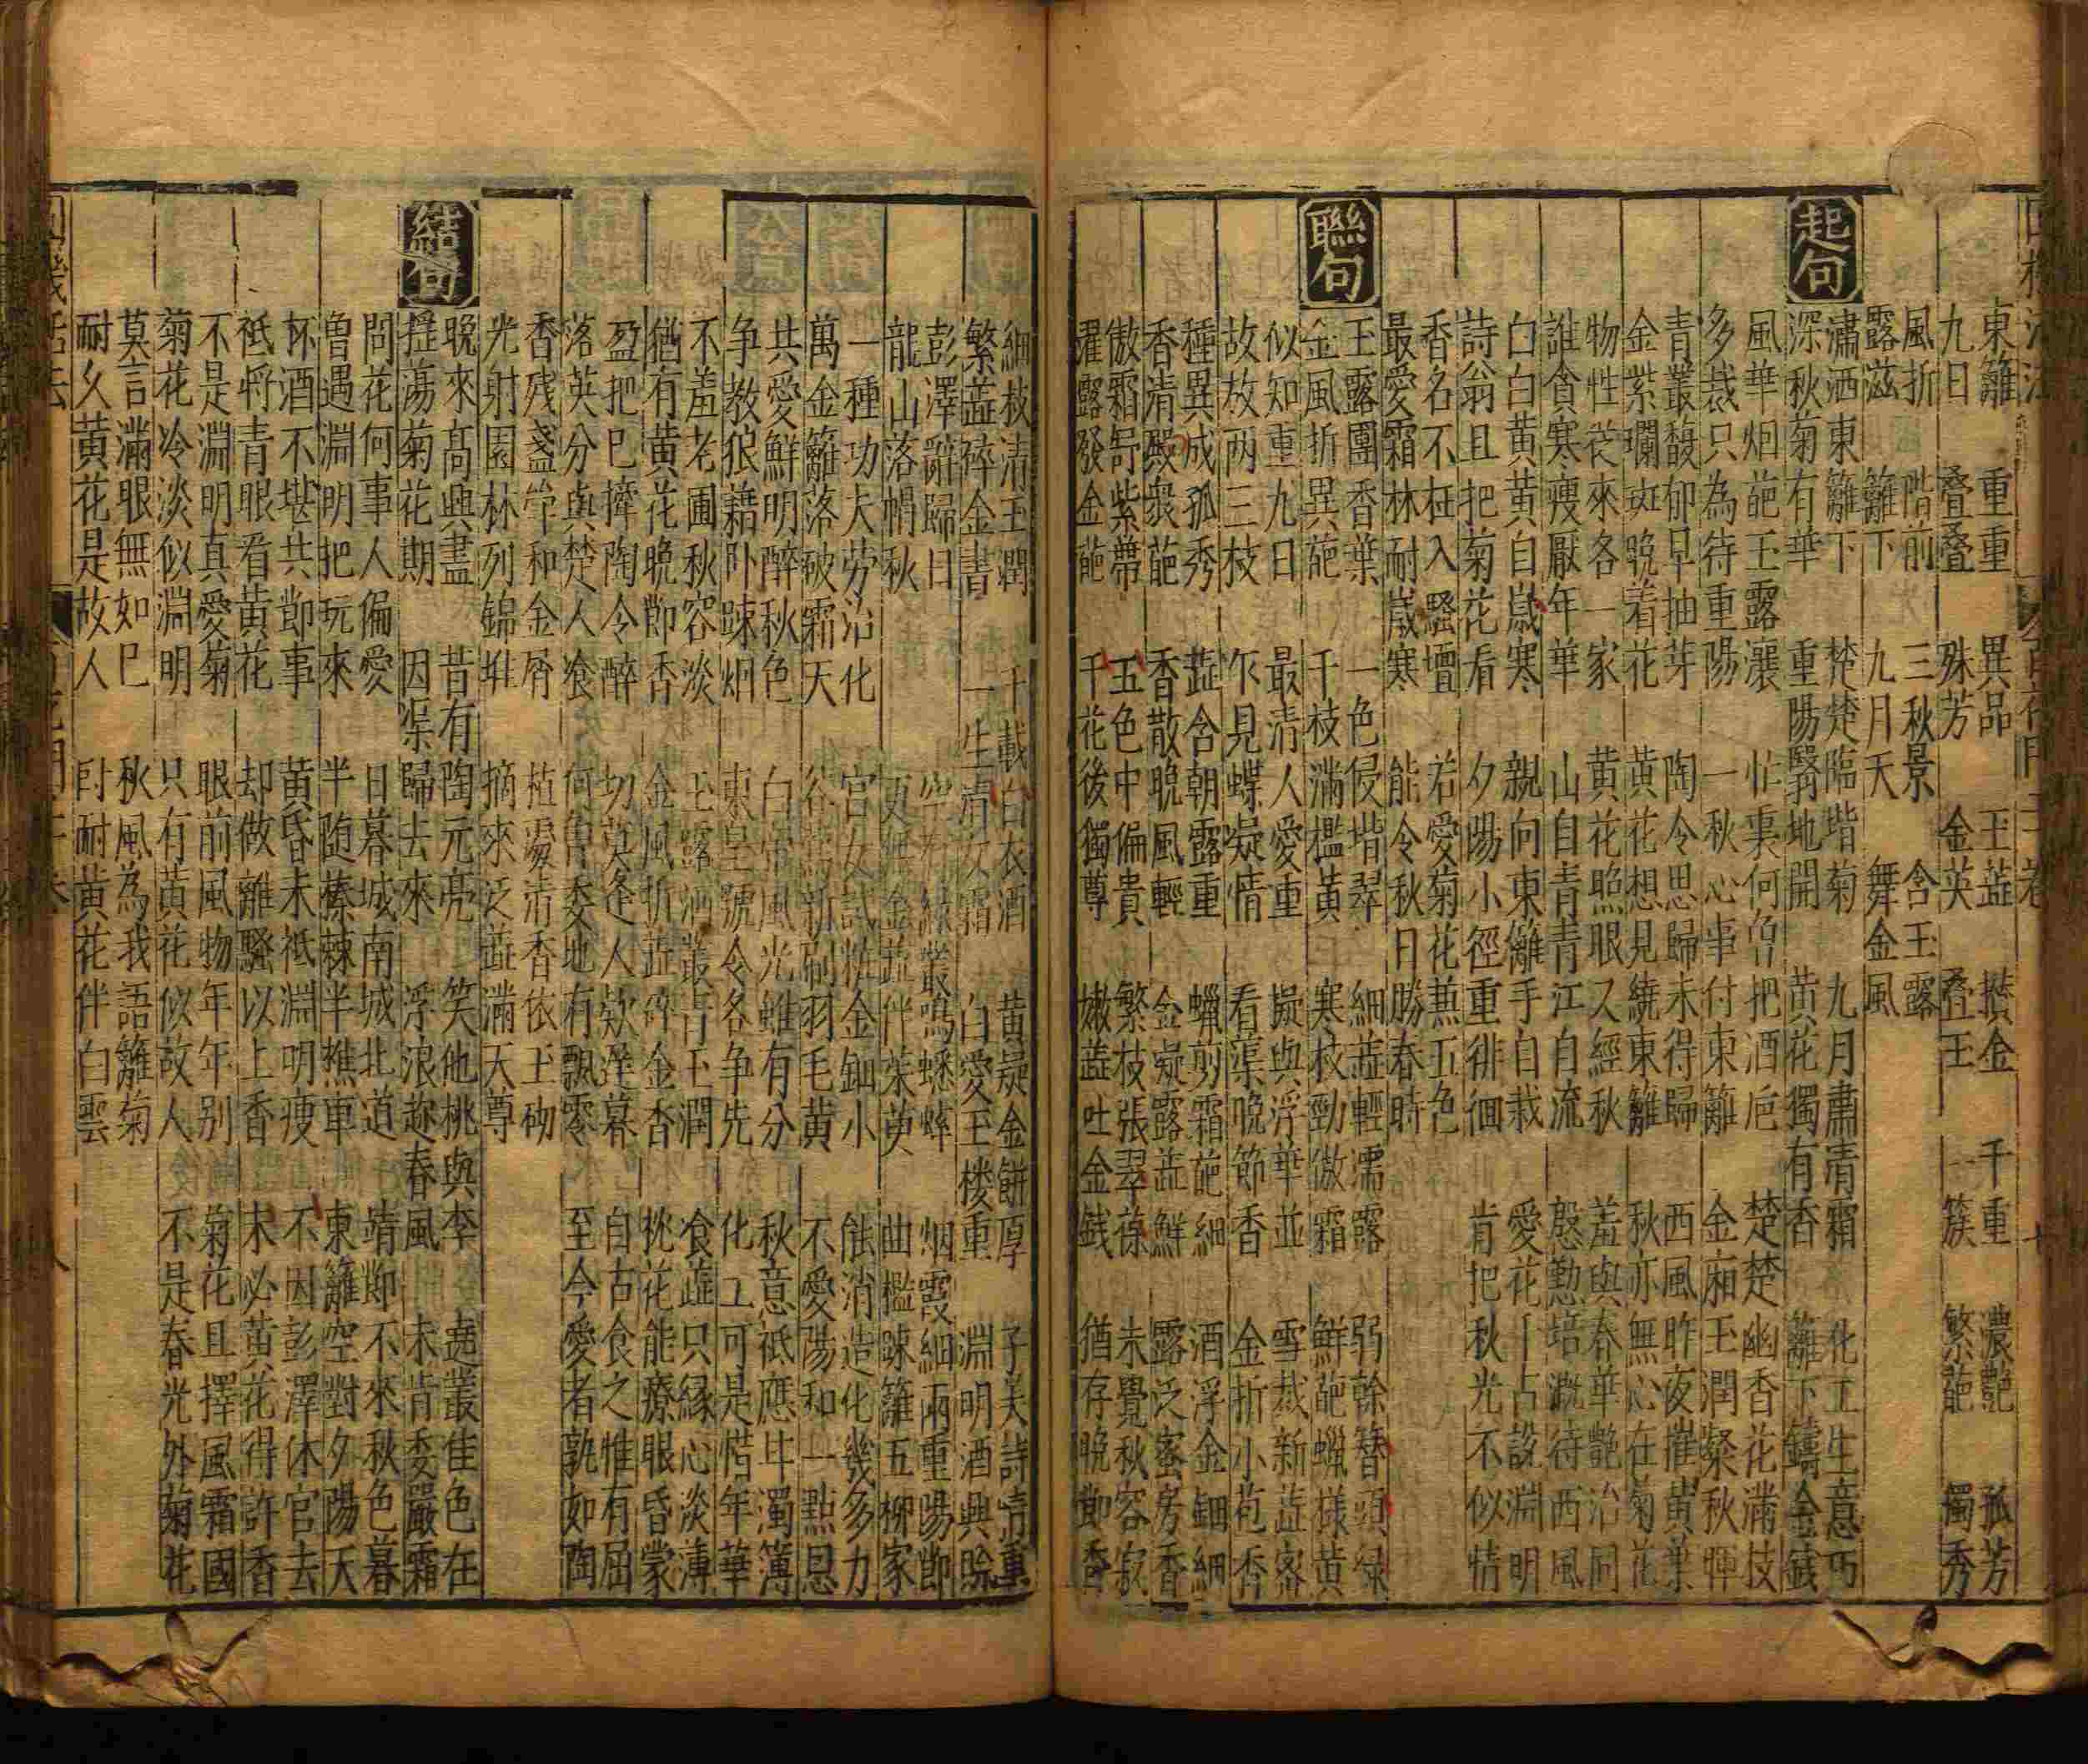 東籬　重重　異品　玉蕋　攅金　千重　濃艷　孤芳
九日　叠叠　殊芳　金英　叠玉　一簇　繁葩　獨秀
風折　階前　三秋景　含玉露
露滋　籬下　九月天　舞金風
起句
瀟洒東籬下　楚楚臨堦菊　九月肅清霜　化工生意巧
深秋菊有華　重陽翳地開　黄花獨有香　籬下鑄金錢
風華烟葩玉露瀼　忙裏何曾把酒巵　楚楚幽香花滿枝
多裁只為待重陽　一秋心事付東籬　金廂玉潤粲秋輝
青叢馥郁早抽芽　陶令思歸未得歸　西風昨夜摧黄葉
金紫斕斑晚着花　黄花想見繞東籬　秋亦無心在菊花
物性從來各一家　黄花照眼又經秋　羞與春華艷冶同
誰貪寒瘦厭年華　山自青青江自流　慇懃培溉待西風
白白黄黄自歲寒　親向東籬手自栽　愛花千占說淵明
詩翁且把菊花看　夕陽小徑重徘徊　肯把秋光不似情
香名不枉入騷壇　若愛菊花蕪五色
最愛霜林耐歲寒　能令秋日勝春時
聯句
玉露團香葉　一色侵堦翠　細蕋輕濡露　弱幹簪頭緑
金風折異葩　千枝滿檻黄　寒枝勁傲霜　鮮葩蠟様黄
似知重九日　最清人愛重　擬與浮華並　雪裁新蕋宻
故故两三枝　乍見蝶凝情　看藁晚節香　金折小苞香
種異成孤秀　蕋含朝露重　蠟剪霜葩細　酒浮金鈿細
香清殿衆葩　香散晚風輕　金凝露蕋鮮　露泛蜜房香
傲霜舒紫蔕　五色中偏貴　繁枝張翠葆　未覺秋容寂
濯露發金葩　千花後獨尊　嫩蕋吐金錢　猶存晚節香
細枝清玉潤　十載白衣酒　黄凝金餅厚　子美詩情重
繁蕋碎金書　一生青女霜　白愛玉楼重　淵明酒興賒
彭澤辭歸日　空　緑叢鳴蟋蟀　烟霞細雨重陽節
龍山落帽秋　更　金蕋伴茱萸　曲檻踈籬五柳家
一種功夫劳治化　宫女試粧金鈿小　蝕消造化幾多力
萬金籬落破霜天　谷鶯新刷羽毛黄　不愛陽和一點恩
共愛鮮明醉秋色　白帝風光雖有分　秋意祗應比濁簿
争教狼藉卧踈烟　東皇號令各争先　化工可是惜年華
不羞老圃秋容淡　玉露洒叢青玉潤　食蕋只縁心淡薄
猶有黄花晚節香　金風折蕋碎金香　挑花能療眼昏蒙
盈把已擠陶令醉　切莫逢人欵遅暮　自古食之惟有屈
落英分與楚人飡　何曾委地有飄零　至今愛者孰如陶
香残盞斝和金屑　植處清香依玉砌
光射園林列錦堆　摘來泛蕋滿天尊
結句
晚來髙興盡　昔有陶元亮　笑他桃與李　遶叢佳色在
揺蕩菊花期　因渠歸去來　浮浪趂春風　未肯委嚴霜
問花何事人偏愛　日暮城南城北道　靖節不來秋色暮
曽遇淵明把玩來　半随榛棘半樵車　東籬空對夕陽天
杯酒不堪共節事　黄昏未祗淵明瘦　不因彭澤休官去
祗将青眼看黄花　却做離騷以上香　未必黄花得許香
不是淵明真愛菊　眼前風物年年别　菊花且擇風霜國
菊花冷淡似淵明　只有黄花似故人　不是春光外菊花
莫言滿眼無如巳　秋風為我語籬菊
耐久黄花是故人　肘耐黄花伴白雲